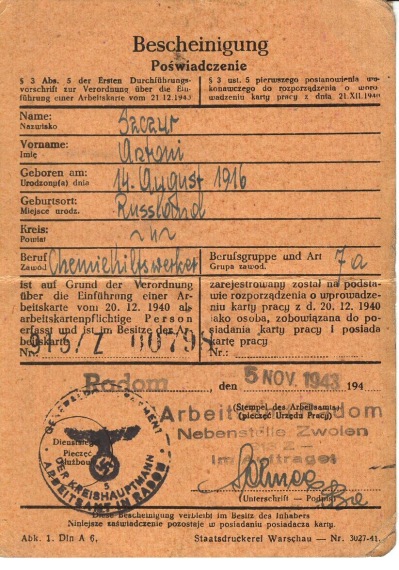 Bescheinigung
Poświadczenie
§ 3 Abs. 5 der Ersten Durchführungs-
vorschrift zur Verordnung über die Ein-
führung einer Arbeitskarte vom 21.12.1940
§ 3 ust. 5 pierwszego postanowienia wy-
konawczego do rozporządzenia o wpro-
wadzeniu karty pracy z dnia 21.XII.1940
Name: Szczur
Nazwisko
Vorname: Antoni
Imię
Geboren am: 14. August 1916
Urodzony(a) dnia
Geburtsort: Russland
Miejsce urodz.
Kreis:
Powiat
Beruf Chemiehilfswerker
Zawód
Berufsgruppe und Art 7a
Grupa zawod.
ist auf Grund der Verordnung
über die Einführung einer Ar-
beitskarte vom 20. 12. 1940 als
arbeitskartenpflichtige Person
erfasst und ist im Besitze der Ar-
beitskarte
Nr. 915/Z 00798
zarejestrowany został na podsta-
wie rozporządzenia o wprowadze-
niu karty pracy z d. 20. 12. 1940
jako osoba, zobowiązana do po-
siadania karty pracy i posiada
kartę pracy
Nr.:
Radom, den 5 NOV. 1943 194
Arbeitsamt Radom
(Stempel des Arbeitsamts)
(pieczęć Urzędu Pracy)
Nebenstelle Zwolen
Im Auftrage:
GENERALGOUVERNEMENT
DER KREISHAUPTMANN
ARBEITSAMT RADOM
5
Dienstsiegel
Pieczęć
służbowa
(Unterschrift — Podpis)
Diese Bescheinigung verbleibt im Besitz des Inhabers
Niniejsze zaświadczenie pozostaje w posiadaniu posiadacza karty.
Abk. 1. Din A 6.
Staatsdruckerei Warschau — Nr. 3027-41.